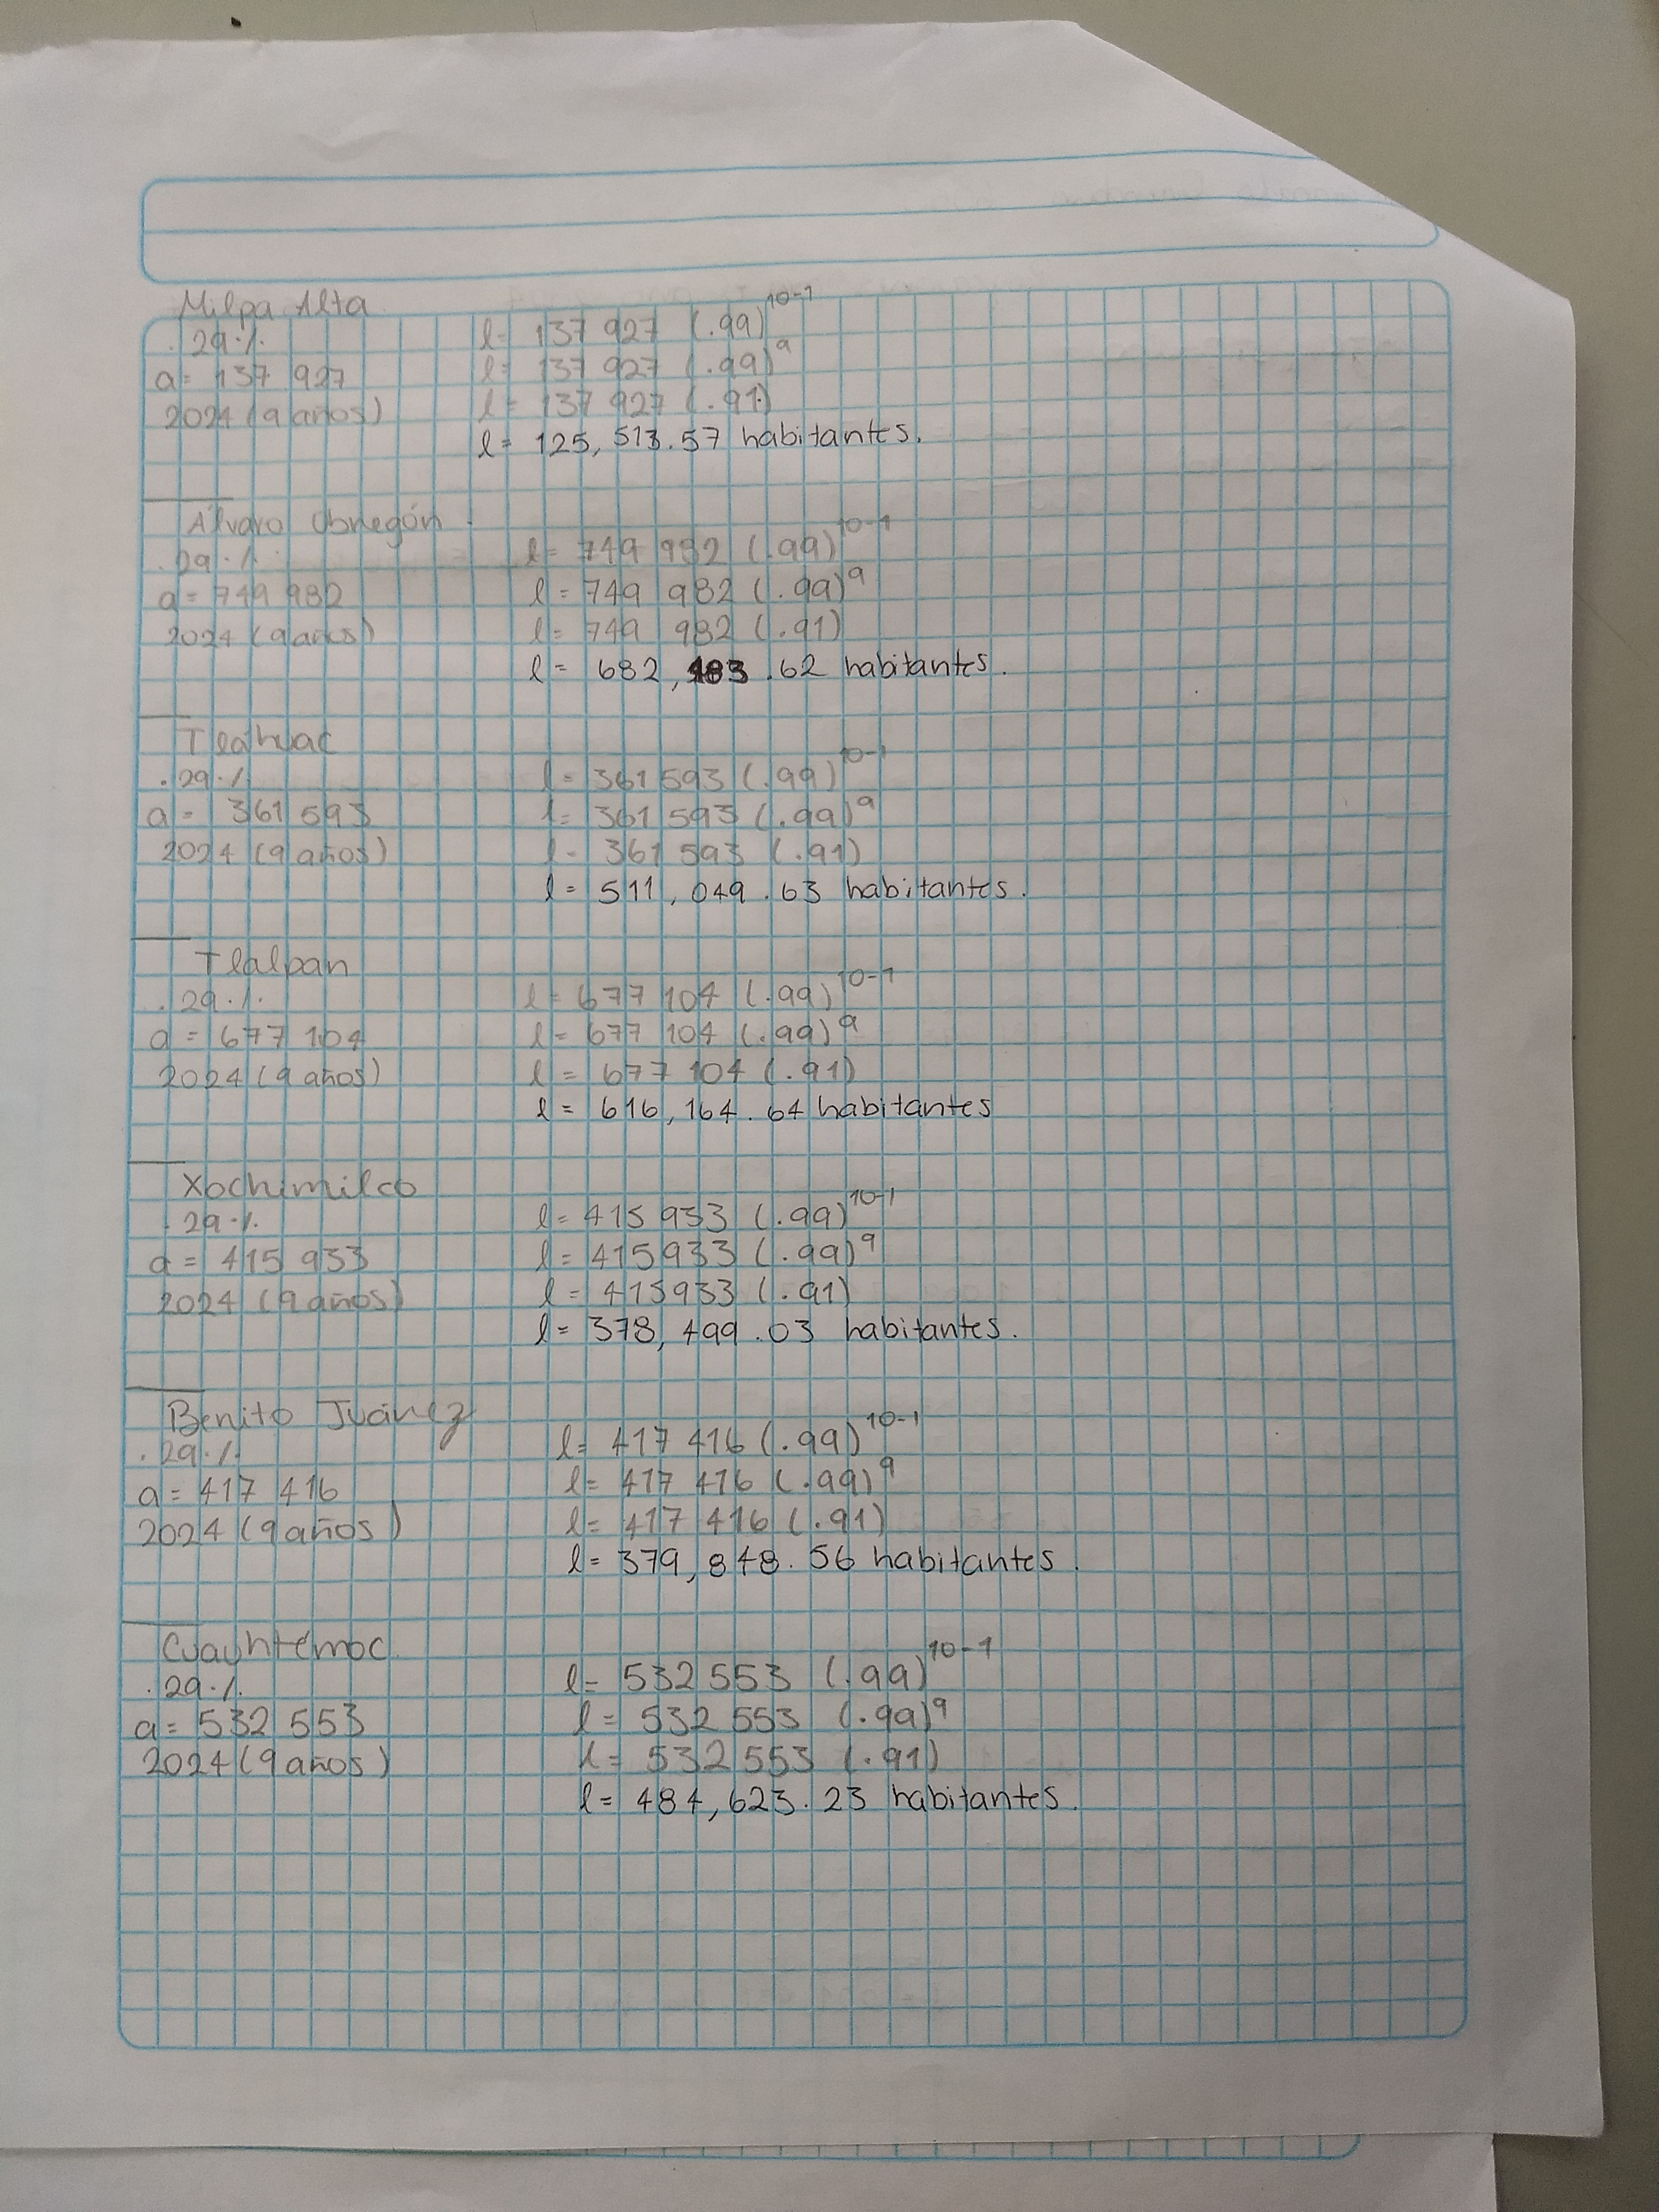 Milpa Alta
.29.%
a= 137 927
2024 (9 años)
l= 137 927 (.99)^10-1
l= 137 927 (.99)^9
l= 137 927 (.91)
l= 125, 513.57 habitantes.
Álvaro Obregón.
.29.%
a= 749 982
2024 (9 años)
l= 749 982 (.99)^10-1
l= 749 982 (.99)^9
l= 749 982 (.91)
l= 682, 483 .62 habitantes.
Tlahuac
.29.%
a= 361 593
2024 (9 años)
l= 361 593 (.99)^10-1
l= 361 593 (.99)^9
l= 361 593 (.91)
l= 511, 049.63 habitantes.
Tlalpan
.29.%.
a= 677 104
2024 (9 años)
l= 677 104 (.99)^10-1
l= 677 104 (.99)^9
l= 677 104 (.91)
l= 616, 164.64 habitantes
Xochimilco
.29.%.
a= 415 933
2024 (9 años)
l= 415 933 (.99)^10-1
l= 415933 (.99)^9
l= 415933 (.91)
l= 378, 499.03 habitantes.
Benito Juárez
.29.%
a= 417 416
2024 (9 años)
l= 417 416 (.99)^10-1
l= 417 416 (.99)^9
l= 417 416 (.91)
l= 379, 848.56 habitantes.
Cuauhtémoc.
.29.%.
a= 532 553
2024 (9 años)
l= 532 553 (.99)^10-1
l= 532 553 (.99)^9
l= 532 553 (.91)
l= 484, 623.23 habitantes.